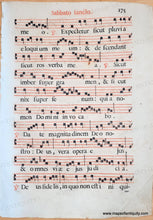 Sabbato sancto. 175
me. Expectetur sicut pluvia
eloquium meum: & descendant
sicut ros verba mea. Sicut
imber super gramen, & sicut
nix super fœnum: quia no-
men Domini invocabo.
Date magnitudinem Deo no-
stro: Deus, vera opera ejus,
& omnes viæ ejus judicia.
Deus fidelis, in quo non est ini qui
www.mapsofantiquity.com